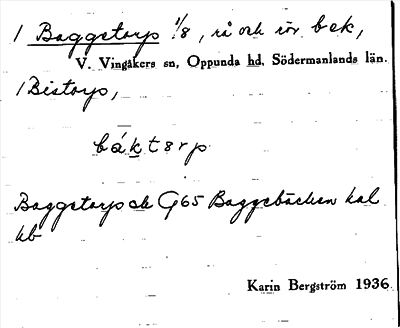 1 Baggetorp 1/8, rå och rör bek,
V. Vingåkers sn, Oppunda hd, Södermanlands län.
1 Bistorp,
báktərp
Baggetorp ek G65 Baggebäcken kal
hb
Karin Bergström 1936